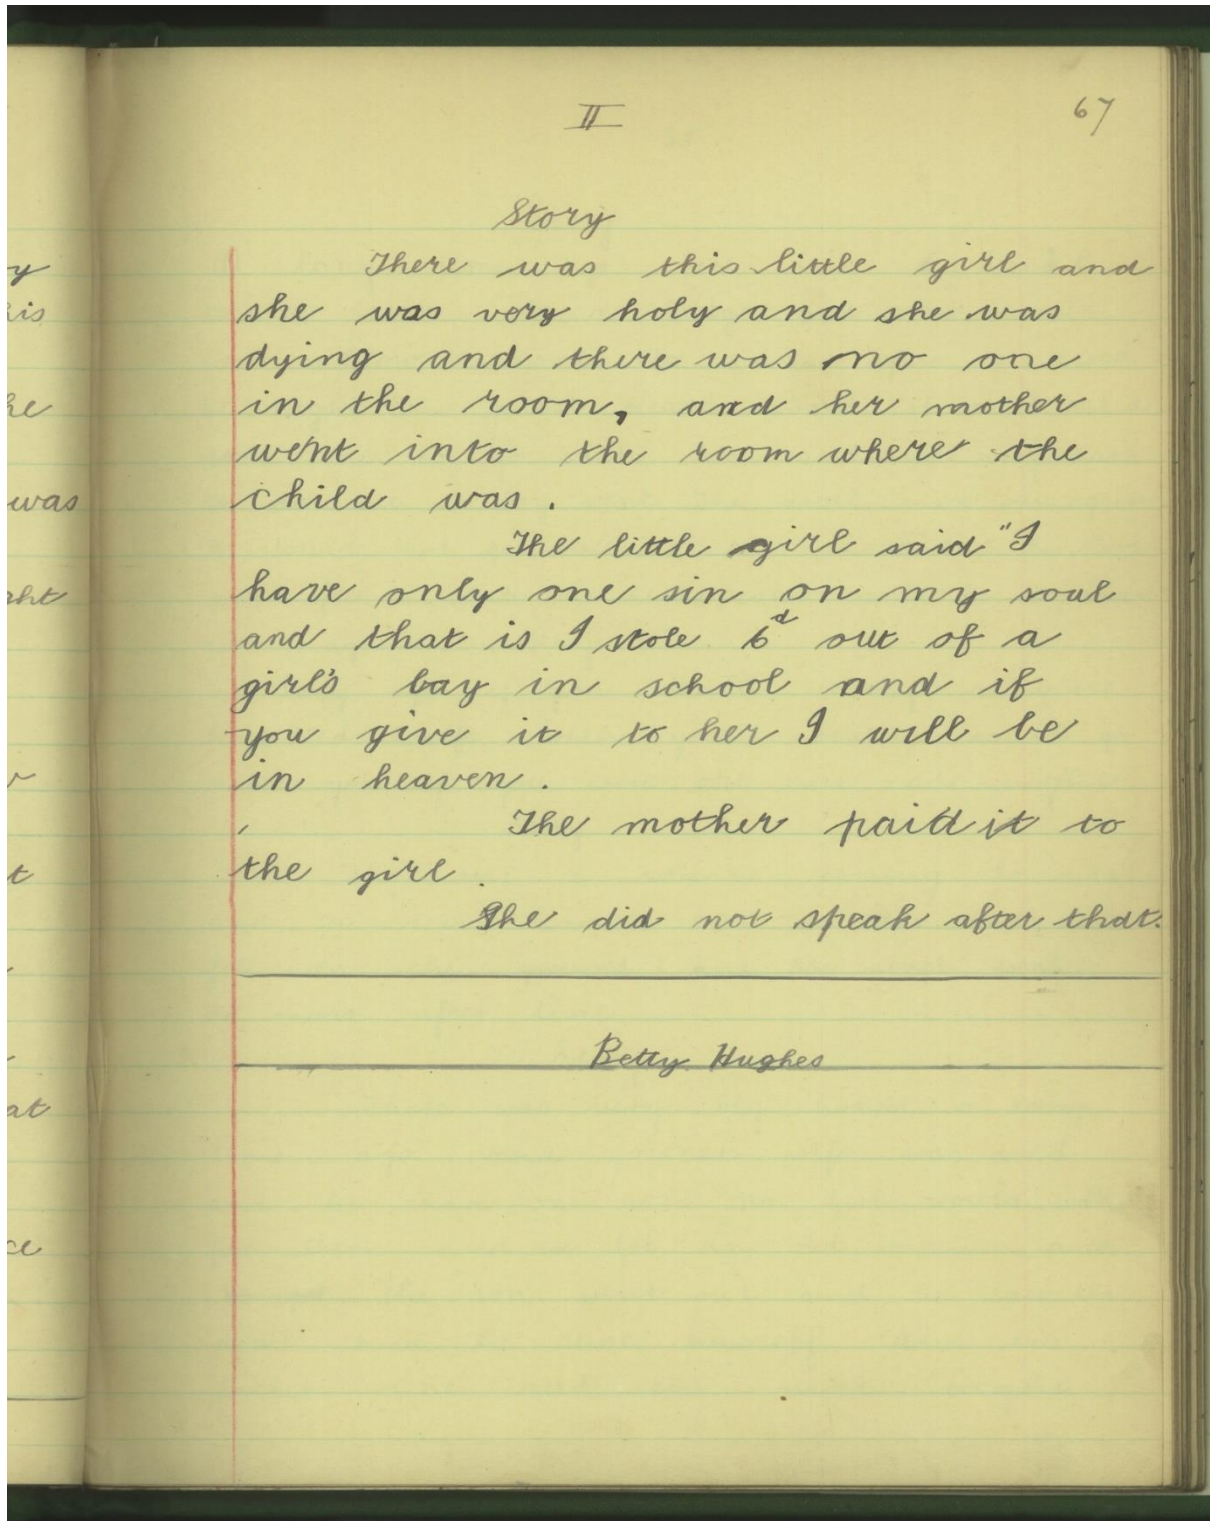 II
67
Story
There was this little girl and
she was very holy and she was
dying and there was no one
in the room, and her mother
went into the room where the
child was.
The little girl said "I
have only one sin on my soul
and that is I stole 6d out of a
girl's bag in school and if
you give it to her I will be
in heaven.
The mother paid it to
the girl.
She did not speak after that.
Betty Hughes
y
his
he
was
ght
t
at
ce